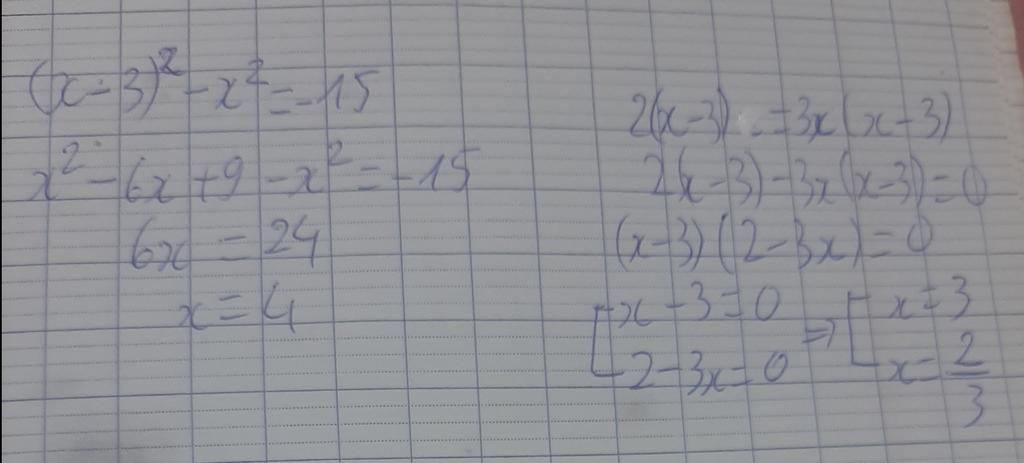 (x-3)² - x² = -15
x² - 6x + 9 - x² = -15
6x = 24
x = 4
2(x-3) = 3x(x-3)
2(x-3) - 3x(x-3) = 0
(x-3)(2-3x) = 0
[x-3=0 => [x=3
[2-3x=0 [x=2/3